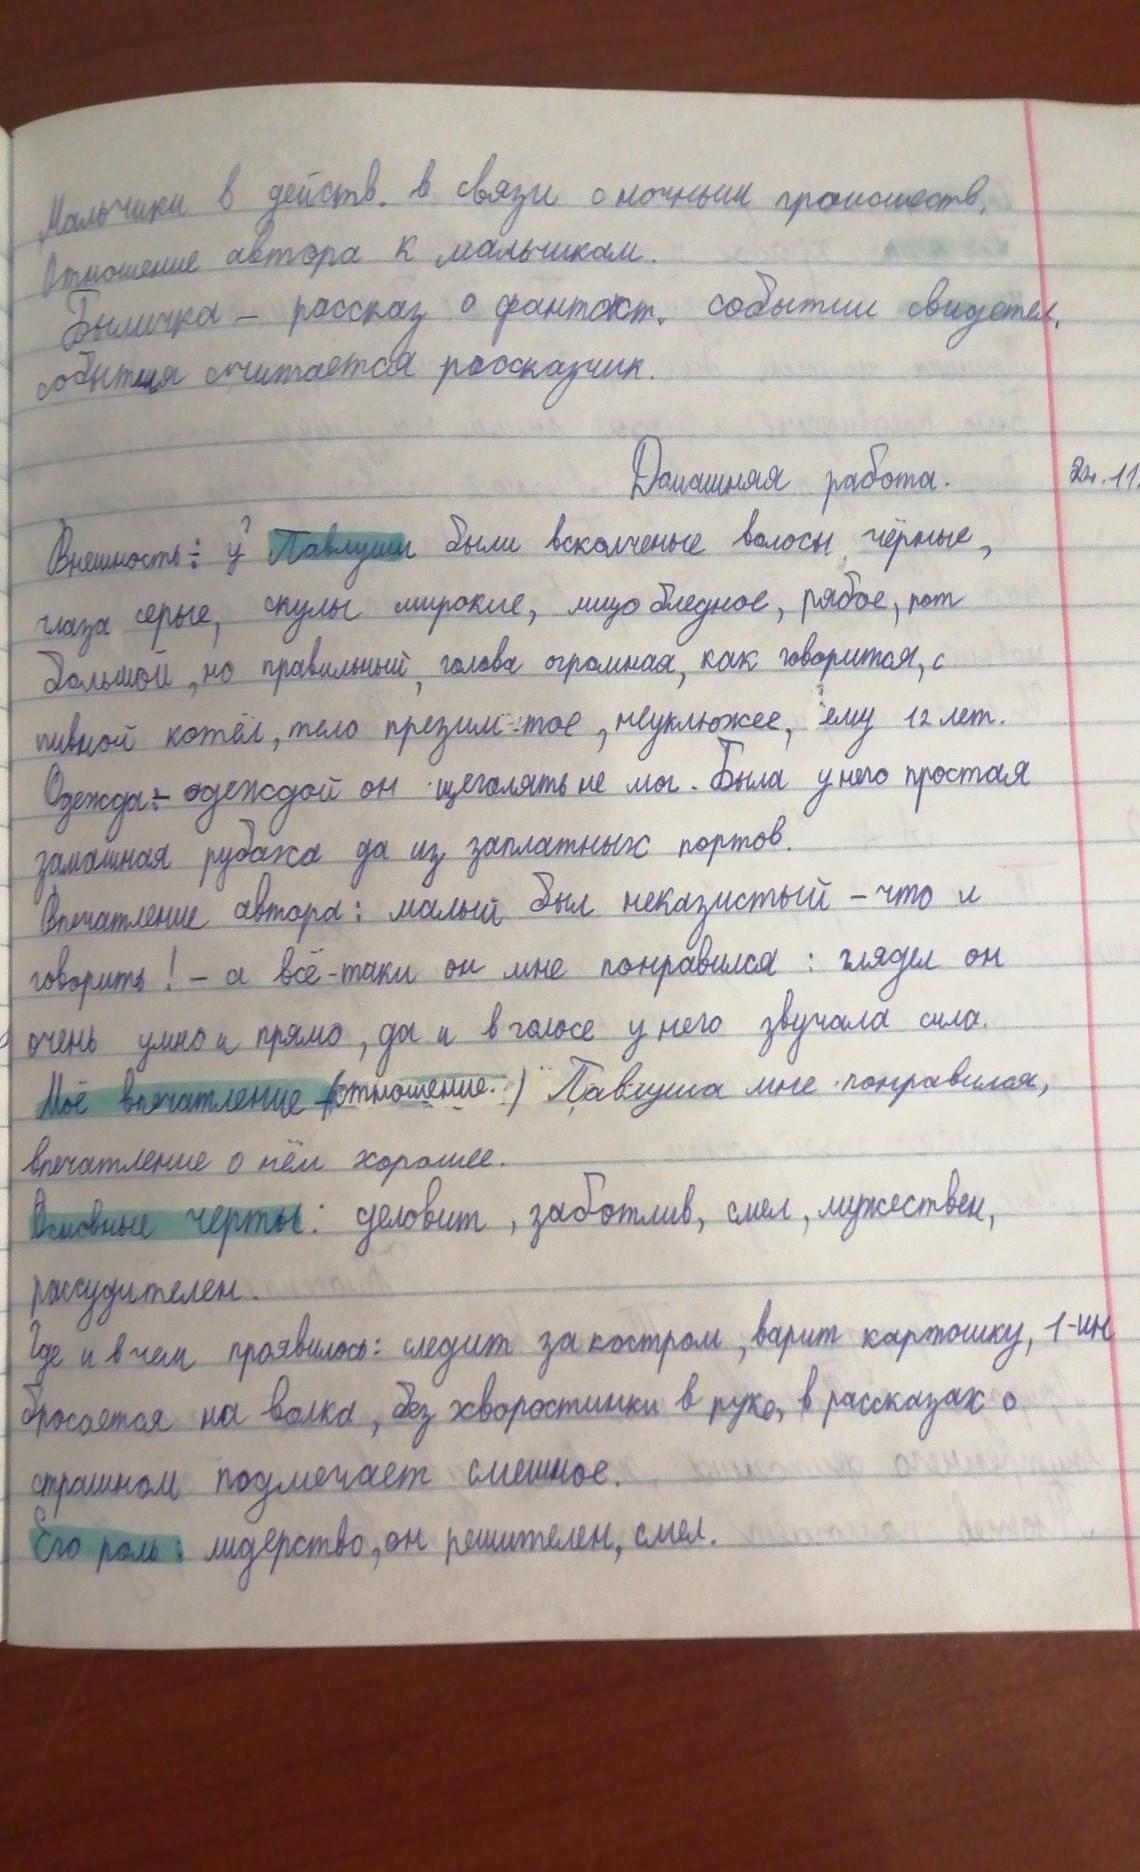 Мальчики в действ. в связи с ночным происшеств.
Отношение автора к мальчикам.
Быличка – рассказ о фантаст. событии свидетел.
события считается рассказчик.
Домашняя работа. 24.11.
Внешность: у Павлуши были всколченые волосы чёрные,
глаза серые, скулы широкие, лицо бледное, рябое, рот
большой, но правильный, голова огромная, как говорится, с
пивной котёл, тело презимистое, неуклюжее, ему 12 лет.
Одежда: одеждой он щеголять не мог. Была у него простая
замашная рубаха да из заплатных портов.
Впечатление автора: малый был неказистый – что и
говорить! – а всё-таки он мне понравился: глядел он
очень умно и прямо, да и в голосе у него звучала сила.
Моё впечатление (отношение.) Павлуша мне понравился,
впечатление о нём хорошее.
Основные черты: деловит, заботлив, смел, мужествен,
рассудителен.
Где и в чем проявилось: следит за костром, варит картошку, 1-ин
бросается на волка, без хворостинки в руке, в рассказах о
страшном подмечает смешное.
Его роль: лидерство, он решителен, смел.